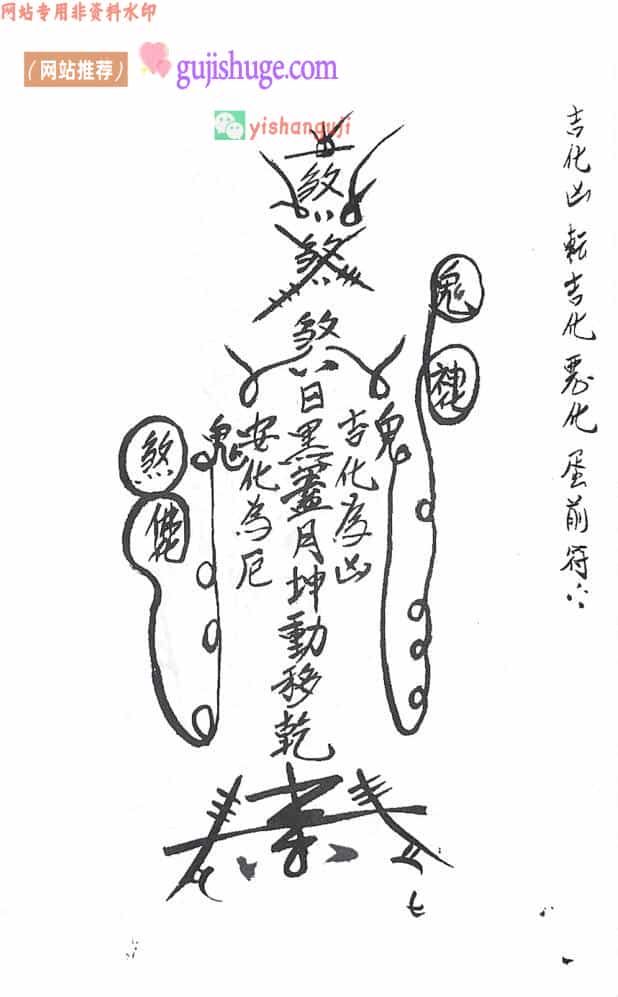 网站专用非资料水印
（网站推荐） gujishuge.com
yishanguji
吉化凶転吉化悪化蛋前符六
煞
煞
煞
日黑蓋月坤動移乾
吉化為凶
安化為厄
鬼
鬼
鬼
煞
七